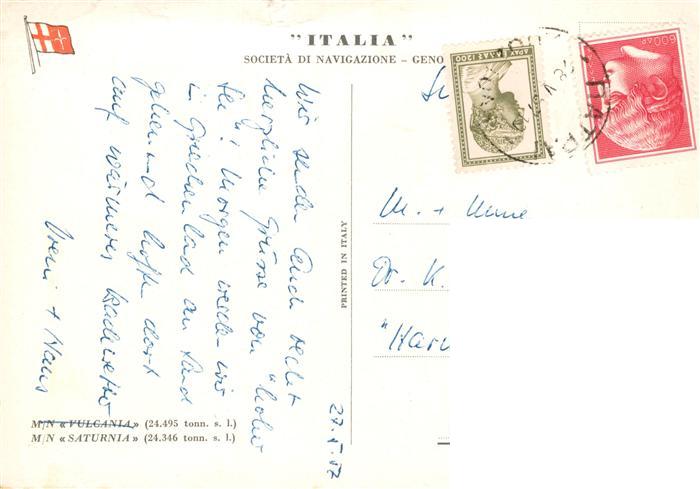 "ITALIA"
SOCIETÀ DI NAVIGAZIONE – GENO
Wir senden Euch recht
herzliche Grüsse von "hoher
See"! Morgen werden wir
in Griechenland an Land
gehen und hoffe dort
auf wärmeres Badewetter
Vreni + Hans
27.5.57
M/N «VULCANIA» (24.495 tonn. s. l.)
M/N «SATURNIA» (24.346 tonn. s. l.)
PRINTED IN ITALY
M. + Mme
Dr. K.
"Har
ΕΛΛΑΣ 1200
600